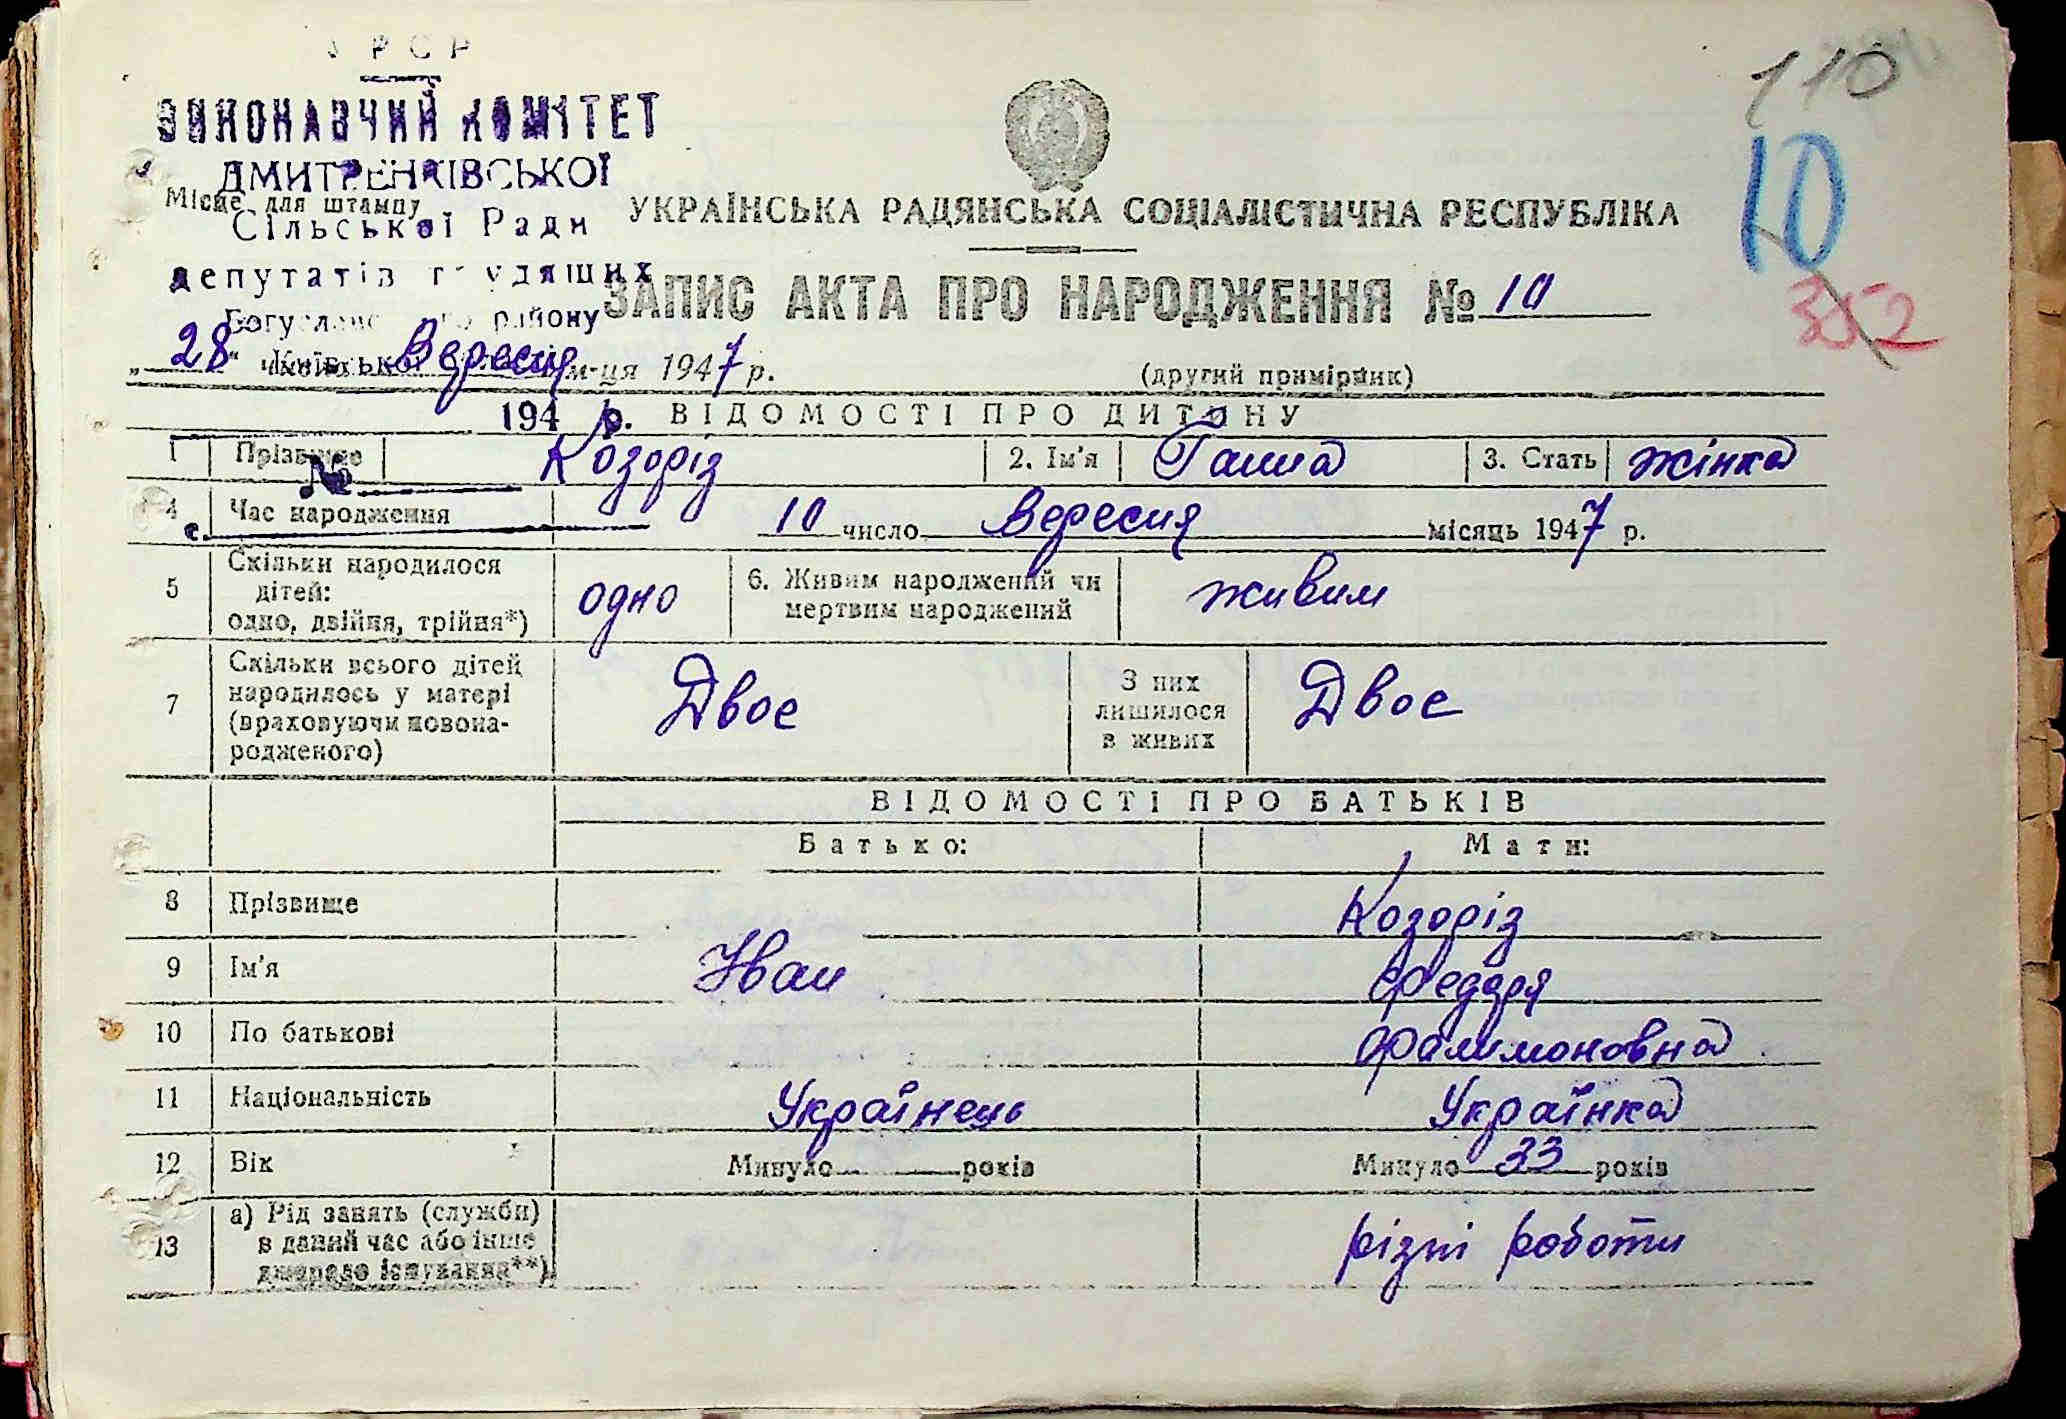 УРСР
110
ВИКОНАВЧИЙ КОМІТЕТ
ДМИТРЕНКІВСЬКОЇ
Місце для штампу
Сільської Ради
депутатів трудящих
Богуславського району
Київської
10
352
УКРАЇНСЬКА РАДЯНСЬКА СОЦІАЛІСТИЧНА РЕСПУБЛІКА
ЗАПИС АКТА ПРО НАРОДЖЕННЯ № 10
„28" Вересня м-ця 1947 р.
(другий примірник)
194 р.
ВІДОМОСТІ ПРО ДИТИНУ
1 Прізвище Козоріз 2. Ім'я Ганна 3. Стать жінка
№
4 Час народження 10 число Вересня місяць 1947 р.
5 Скільки народилося дітей: одно, двійня, трійня*) одно 6. Живим народжений чи мертвим народжений живим
7 Скільки всього дітей народилось у матері (враховуючи новонародженого) Двоє З них лишилося в живих Двоє
ВІДОМОСТІ ПРО БАТЬКІВ
Батько: Мати:
8 Прізвище Козоріз
9 Ім'я Іван Феддря
10 По батькові Фалимоновна
11 Національність Українець Українка
12 Вік Минуло років Минуло 33 років
13 а) Рід занять (служби) в даний час або інше джерело існування**) різні роботи